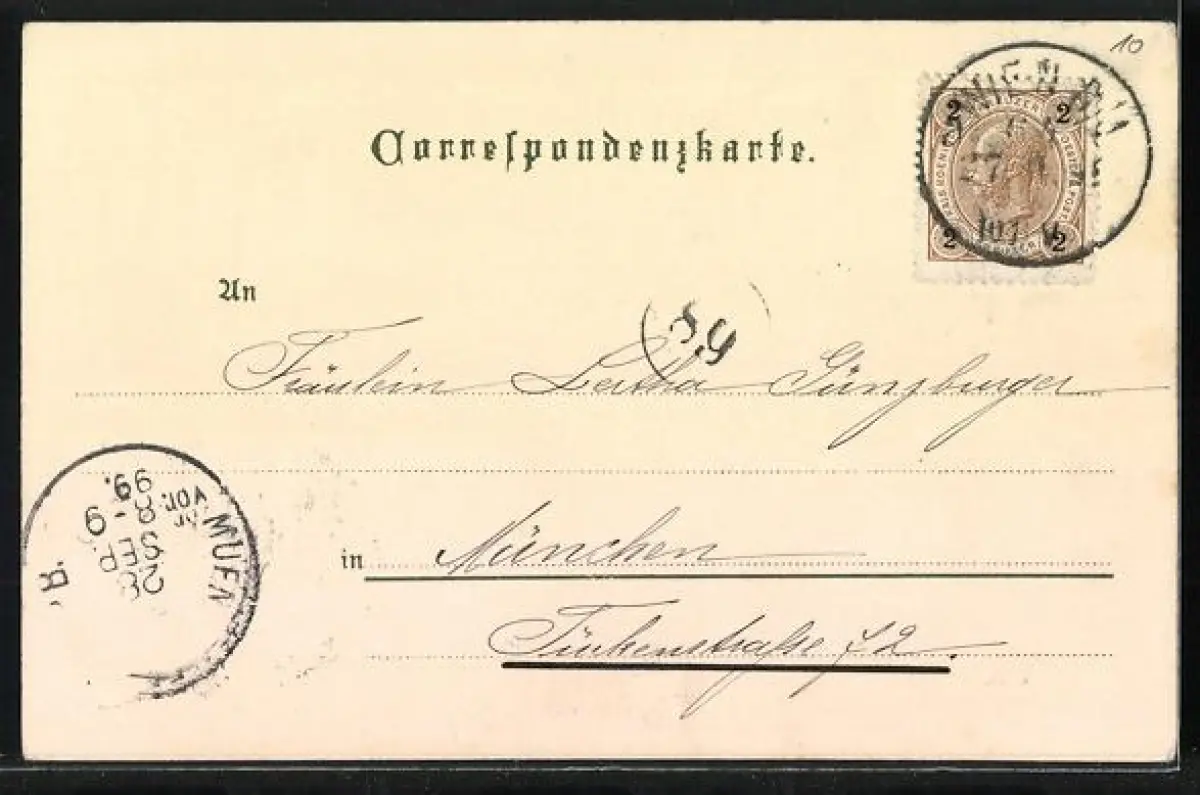 10
WIEN
2 2
2 2
Correspondenzkarte.
An
59
Fräulein Bertha Günzburger
MUEN
VOR.
8-9
99.
28
SEP.
B.
in München
Türkenstraße 72.